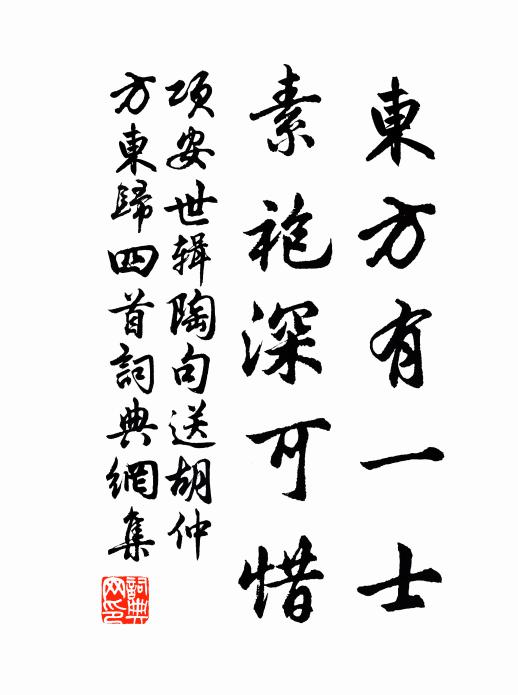 東方有一士
素袍深可惜
項安世辑陶句送胡仲
方東歸四首詞典網集
詞典網印